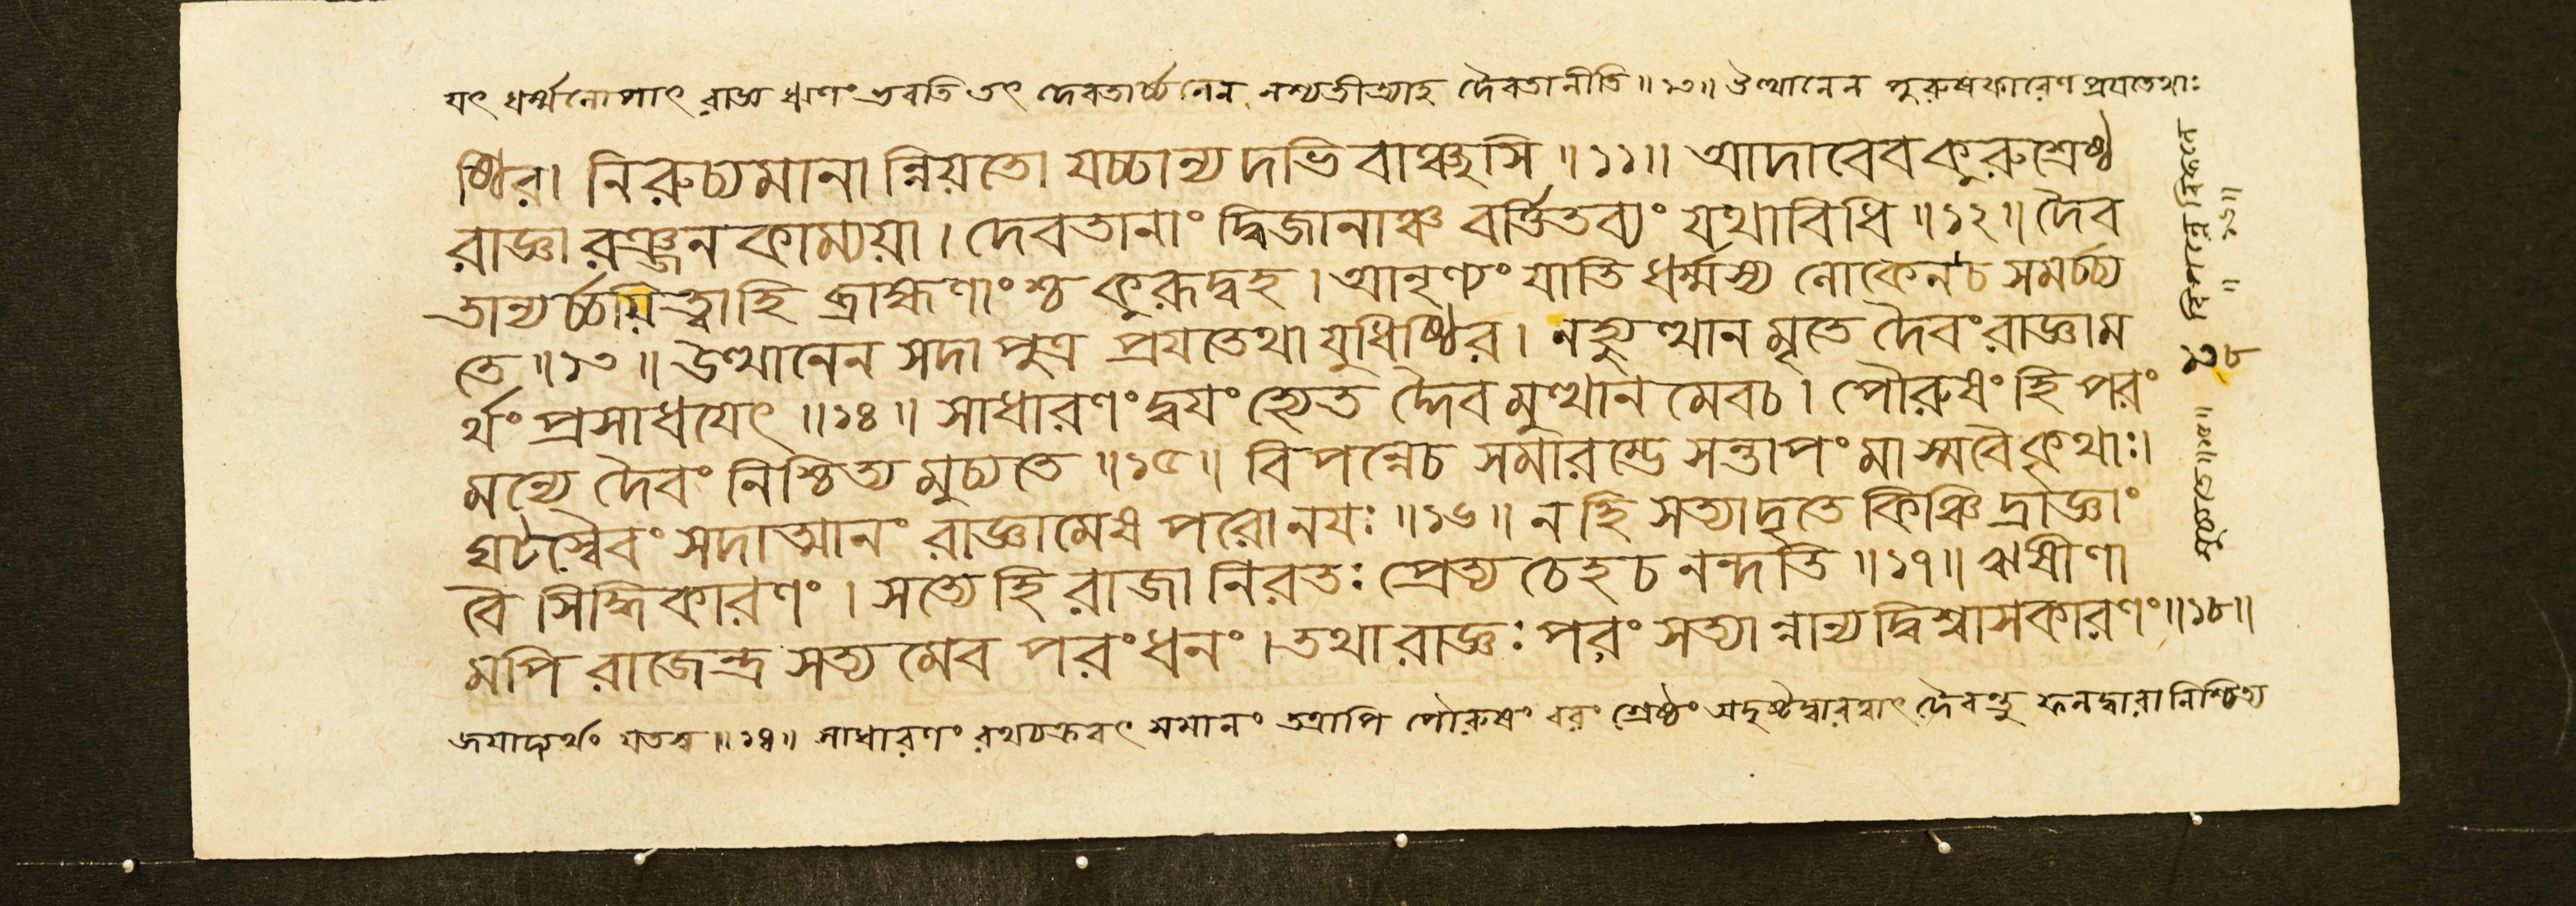 যৎ ধর্ম্মলোপাৎ রাজ্ঞ ঋণং ভবতি তৎ দেবতার্চ্চনেন নশ্যতীত্যাহ দৈবতানীতি ॥ ১৩ ॥ উত্থানেন পুরুষকারেণ প্রযতেথাঃ
ষ্ঠির। নিরুচ্যমানা ন্নিয়তো যচ্চান্য দভি বাঞ্ছসি ॥ ১১ ॥ আদাবেব কুরুশ্রেষ্ঠ
রাজ্ঞা রঞ্জন কাম্যয়া । দেবতানাং দ্বিজানাঞ্চ বর্ত্তিতব্যং যথাবিধি ॥ ১২ ॥ দৈব
তান্যর্চ্চয়িত্বাহি ব্রাহ্মণাংশ্চ কুরূদ্বহ । আনৃণ্যং যাতি ধর্ম্মস্য লোকেনচ সমর্চ্চ্য
তে ॥ ১৩ ॥ উত্থানেন সদা পুত্র প্রযতেথা যুধিষ্ঠির । নহ্যুত্থান মৃতে দৈবং রাজ্ঞাম
র্থং প্রসাধযেৎ ॥ ১৪ ॥ সাধারণং দ্বযং হ্যেত দ্দৈব মুত্থান মেবচ । পৌরুষং হি পরং
মন্যে দৈবং নিশ্চিত্য মুচ্যতে ॥ ১৫ ॥ বিপন্নেচ সমারম্ভে সন্তাপং মাস্মবৈ কৃথাঃ।
ঘটস্বৈবং সদাত্মানং রাজ্ঞামেষ পরোনযঃ ॥ ১৬ ॥ নহি সত্যাদৃতে কিঞ্চি দ্রাজ্ঞাং
বৈ সিদ্ধিকারণং । সত্যে হি রাজা নিরতঃ প্রেত্য চেহচ নন্দতি ॥ ১৭ ॥ ঋষীণা
মপি রাজেন্দ্র সত্য মেব পরং ধনং । তথা রাজ্ঞঃ পরং সত্যা ন্নান্য দ্বিশ্বাসকারণং ॥ ১৮ ॥
জযাদ্যর্থং যতস্ব ॥ ১৪ ॥ সাধারণং রথচক্রবৎ সমানং তত্রাপি পৌরুষং বরং শ্রেষ্ঠং অদৃষ্টদ্বারত্বাৎ দৈবন্তু ফলদ্বারা নিশ্চিত্য
মুচ্যতে ॥ ১৫ ॥ বিপন্নে বিফলে
॥ ১৬ ॥